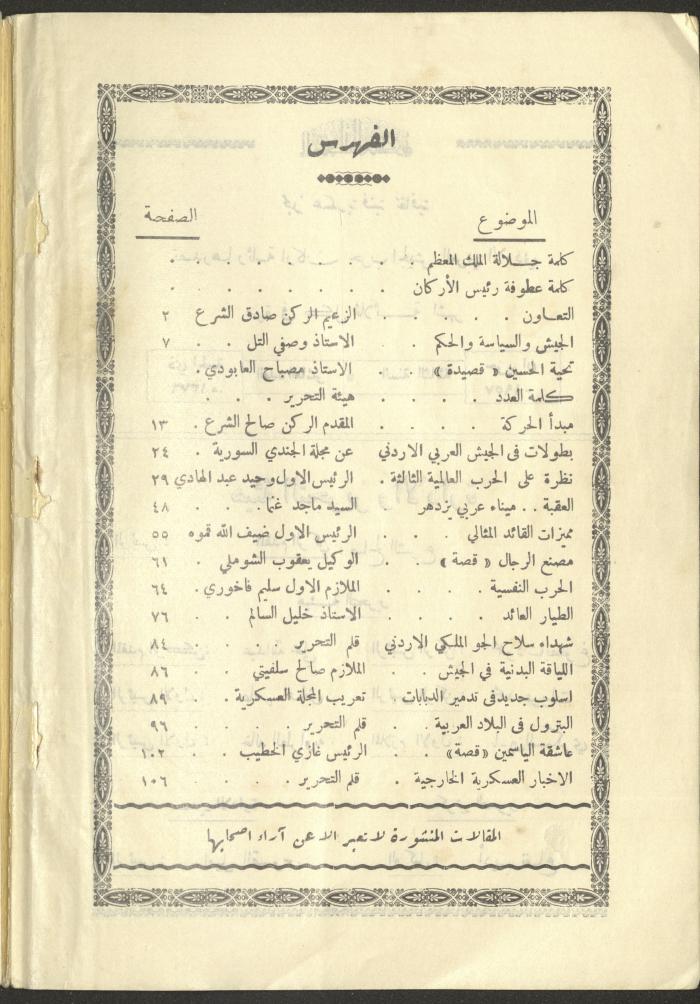 الفهرس
الموضوع الصفحة
كلمة جلالة الملك المعظم . . . . . . . .
كلمة عطوفة رئيس الأركان . . . . . . . .
التعاون . . . . الزعيم الركن صادق الشرع ٢
الجيش والسياسة والحكم . . الاستاذ وصفي التل . . ٧
تحية الحسين « قصيدة » . . الاستاذ مصباح العابودي .
كلمة العدد . . . . هيئة التحرير . . .
مبدأ الحركة . . . . المقدم الركن صالح الشرع . ١٣
بطولات في الجيش العربي الاردني عن مجلة الجندي السورية . ٢٤
نظرة على الحرب العالمية الثالثة . الرئيس الاول وحيد عبد الهادي ٢٩
العقبة . . ميناء عربي يزدهر . السيد ماجد غنما . . . ٤٨
مميزات القائد المثالي . . . الرئيس الاول ضيف الله قموه ٥٥
مصنع الرجال « قصة » . . الوكيل يعقوب الشوملي . ٦١
الحرب النفسية . . . . الملازم الاول سليم فاخوري . ٦٤
الطيار العائد . . . . الاستاذ خليل السالم . . ٧٦
شهداء سلاح الجو الملكي الاردني قلم التحرير . . . ٨٤
اللياقة البدنية في الجيش . . الملازم صالح سلفيتي . . ٨٦
اسلوب جديد في تدمير الدبابات . تعريب المجلة العسكرية . . ٨٩
البترول في البلاد العربية . . قلم التحرير . . . . ٩٦
عاشقة الياسمين «قصة» . . الرئيس غازي الخطيب . . ١٠٢
الاخبار العسكرية الخارجية . قلم التحرير . . . . ١٠٦
المقالات المنشورة لا تعبر الا عن آراء اصحابها